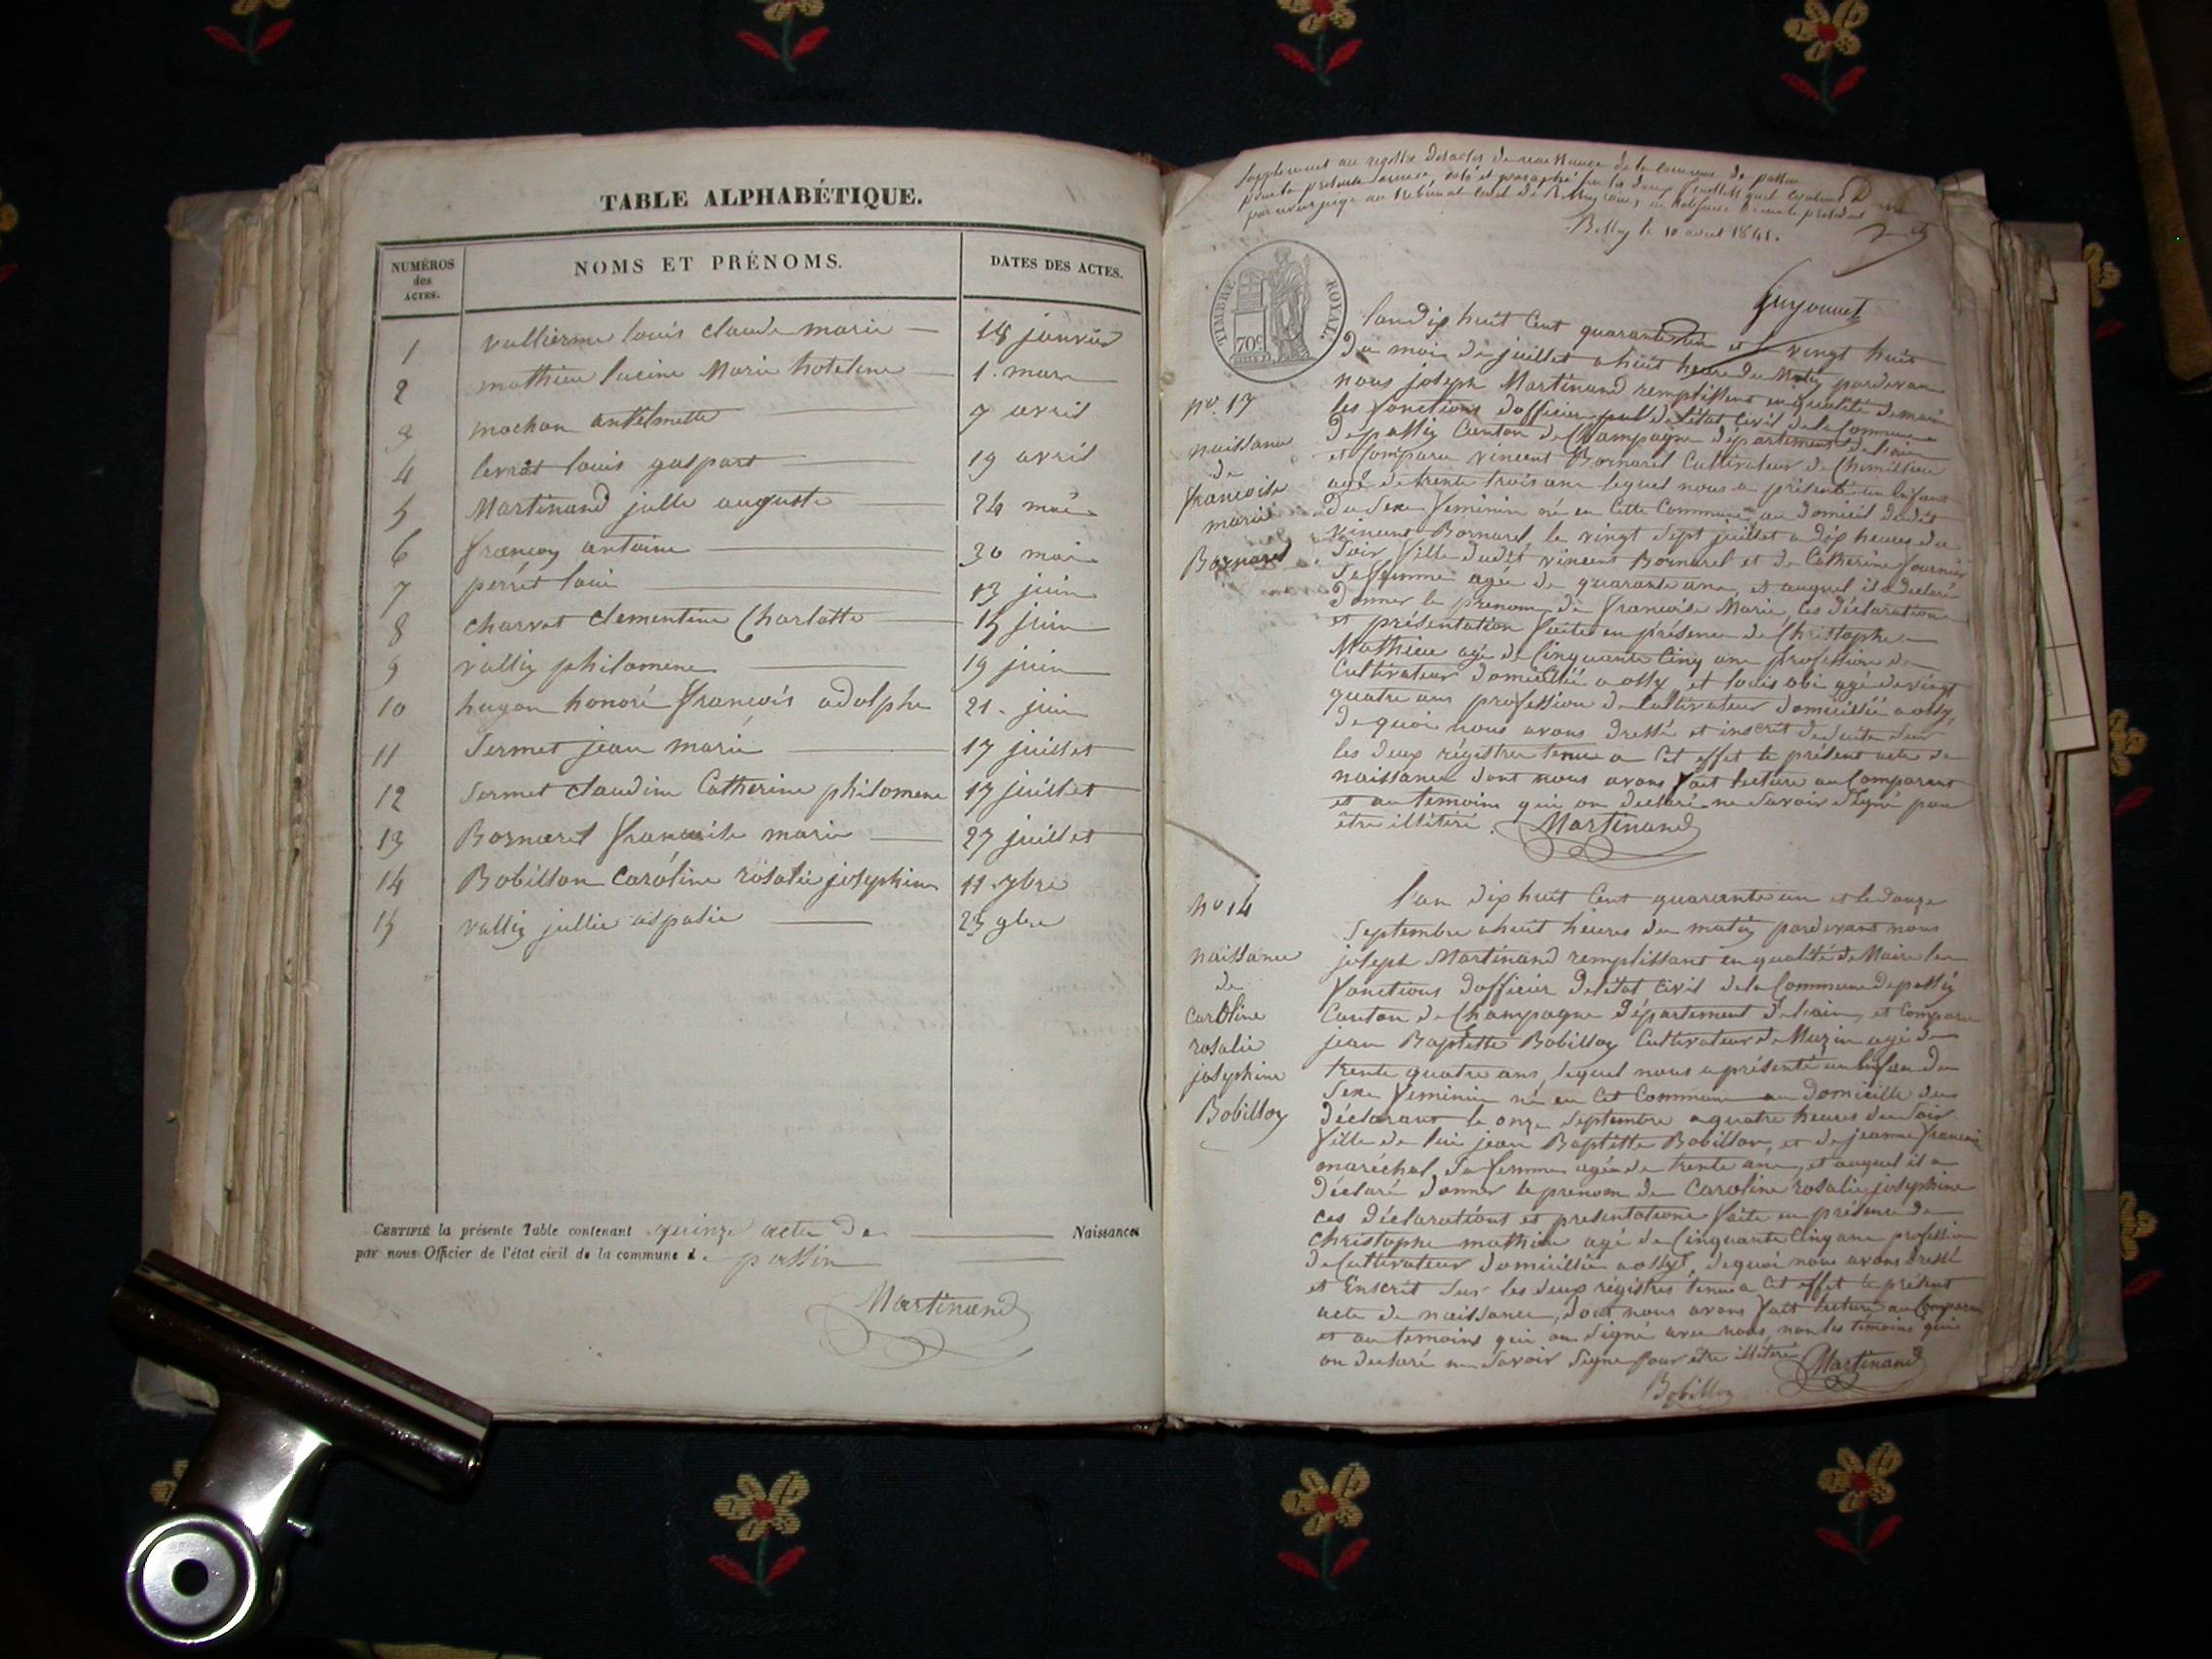 TABLE ALPHABÉTIQUE.
NUMÉROS
des
ACTES.
NOMS ET PRÉNOMS.
DATES DES ACTES.
1 vullierme louis claude marie 18 janvier
2 mathieu lucine Marie 1. mars
3 mochon antelmette 7 avril
4 levrat louis gaspart 19 avril
5 Martinand julle auguste 24 mai
6 françon antoine 30 mai
7 perret loui 13 juin
8 charvet clementine Charlotte 15 juin
9 vallin philomene 19 juin
10 hugon honoré françois adolphe 21. juin
11 Sermet jean marie 17 juillet
12 Sermet claudine Catherine philomene 17 juillet
13 Bornarel francoise marie 27 juillet
14 Bobillon caroline rosalie josephine 11. 7bre
15 vallin jullie aspasie 23 9bre
CERTIFIÉ la présente Table contenant quinze acte de Naissances
par nous Officier de l'état civil de la commune de passin
Martinand
Supplement au registre des actes de naissance de la commune de passin
pour la presente année, coté et paraphé sur les deux feuillets
par nous juge au tribunal civil de
Belley le 10 avril 1841.
TIMBRE ROYAL.
70c
Guyonnet
l'an dix huit cent quarante un et le vingt huit
du moi de juillet a huit heure du matin pardevan
nous joseph Martinand remplissent en qualité de maire
les fonctions dofficier de l'état civil de la Commune
de passin Canton de Champagne département de lain
et Comparu vincent Bornarel Cultivateur de Chemillieu
agé de trente trois ans lequel nous a présenté un enfant
du Sexe feminin né en Cette Commune, au domicil dudit
vincent Bornarel, le vingt Sept juillet a dix heures du
Soir fille dudit vincent Bornarel et de Catherine fournier
Sa femme agée de quarante ans, et auquel il a declaré
donner le prenom de francoise Marie, Ces déclaration
et présentation faites en présence de Christophe
Mathieu agé de Cinquante Cinq ans profession de
Cultivateur domicillié a ossy et louis obi agé de vingt
quatre ans profession de Cultivateur domicillié a ossy,
de quoi nous avons dressé et inscrit de suite sur
les deux régistres tenu a Cet effet le présent acte de
naissance dont nous avons fait lecture au Comparant
et au temoins qui on declaré ne Savoir Signé pour
être illitiré. Martinand
no. 13
naissance
de
francoise
marie
Bornarel
l'an dix huit Cent quarante un et le douze
Septembre a huit heures du matin pardevant nous
joseph Martinand remplissant en qualité de Maire les
fonctions dofficier de l'état Civil de la Commune de passin
Canton de Champagne Département de lain, et Comparu
jean Baptiste Bobillon Cultivateur de Muzin agé de
trente quatre ans, lequel nous a présenté un enfan du
Sexe feminin né en Cet Commune au domicille du
déclarant le onze Septembre a quatre heures du Soir
fille de lui jean Baptiste Bobillon, et de jeanne francoise
maréchal, Sa femme agée de trente ans, et auquel il a
déclaré donner le prenom de Caroline rosalie josephine
ces déclarations et presentations faite en présence de
christophe mathieu agé de Cinquante Cinq ans profession
de Cultivateur domicillié a ossy, de quoi nous avons dressé
et Enscrit Sur les deux régistres tenu a Cet effet le présent
acte de naissance, dont nous avons fait lecture au Comparan
et au temoins qui on Signé avec nous, non les témoins qui
on declaré ne Savoir Signe pour être illitiré Martinand
Bobillon
no 14
naissance
de
caroline
rosalie
josephine
Bobillon